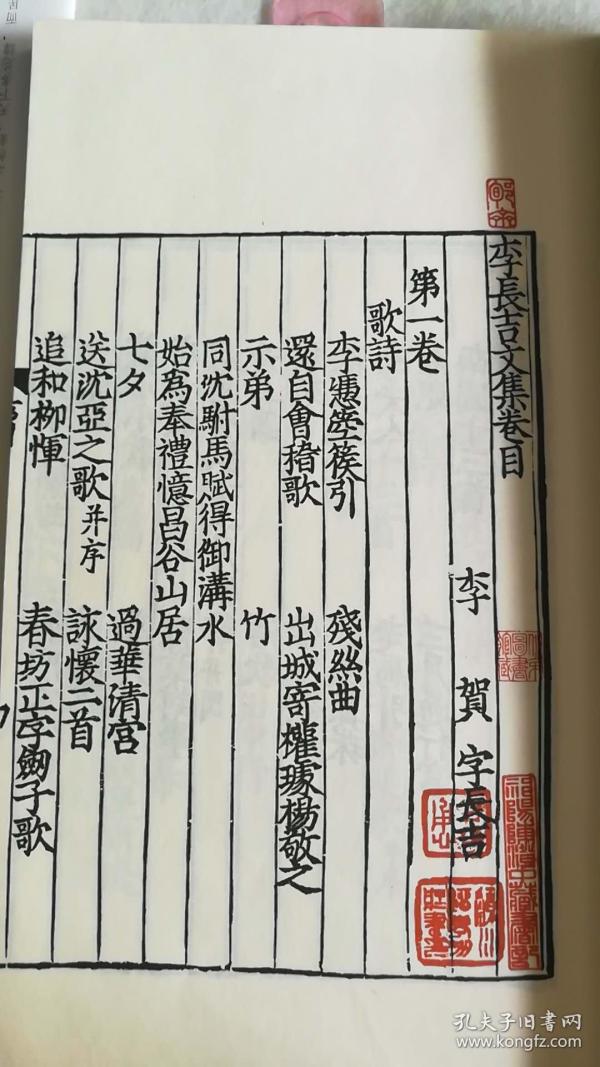 李長吉文集卷目
李賀 字長吉
第一卷
歌詩
李憑箜篌引 殘絲曲
還自會稽歌 出城寄權璩楊敬之
示弟 竹
同沈駙馬賦得御溝水
始為奉禮憶昌谷山居
七夕 過華清宮
送沈亞之歌并序 詠懷二首
追和柳惲 春坊正字劒子歌
孔夫子旧书网
www.kongfz.com